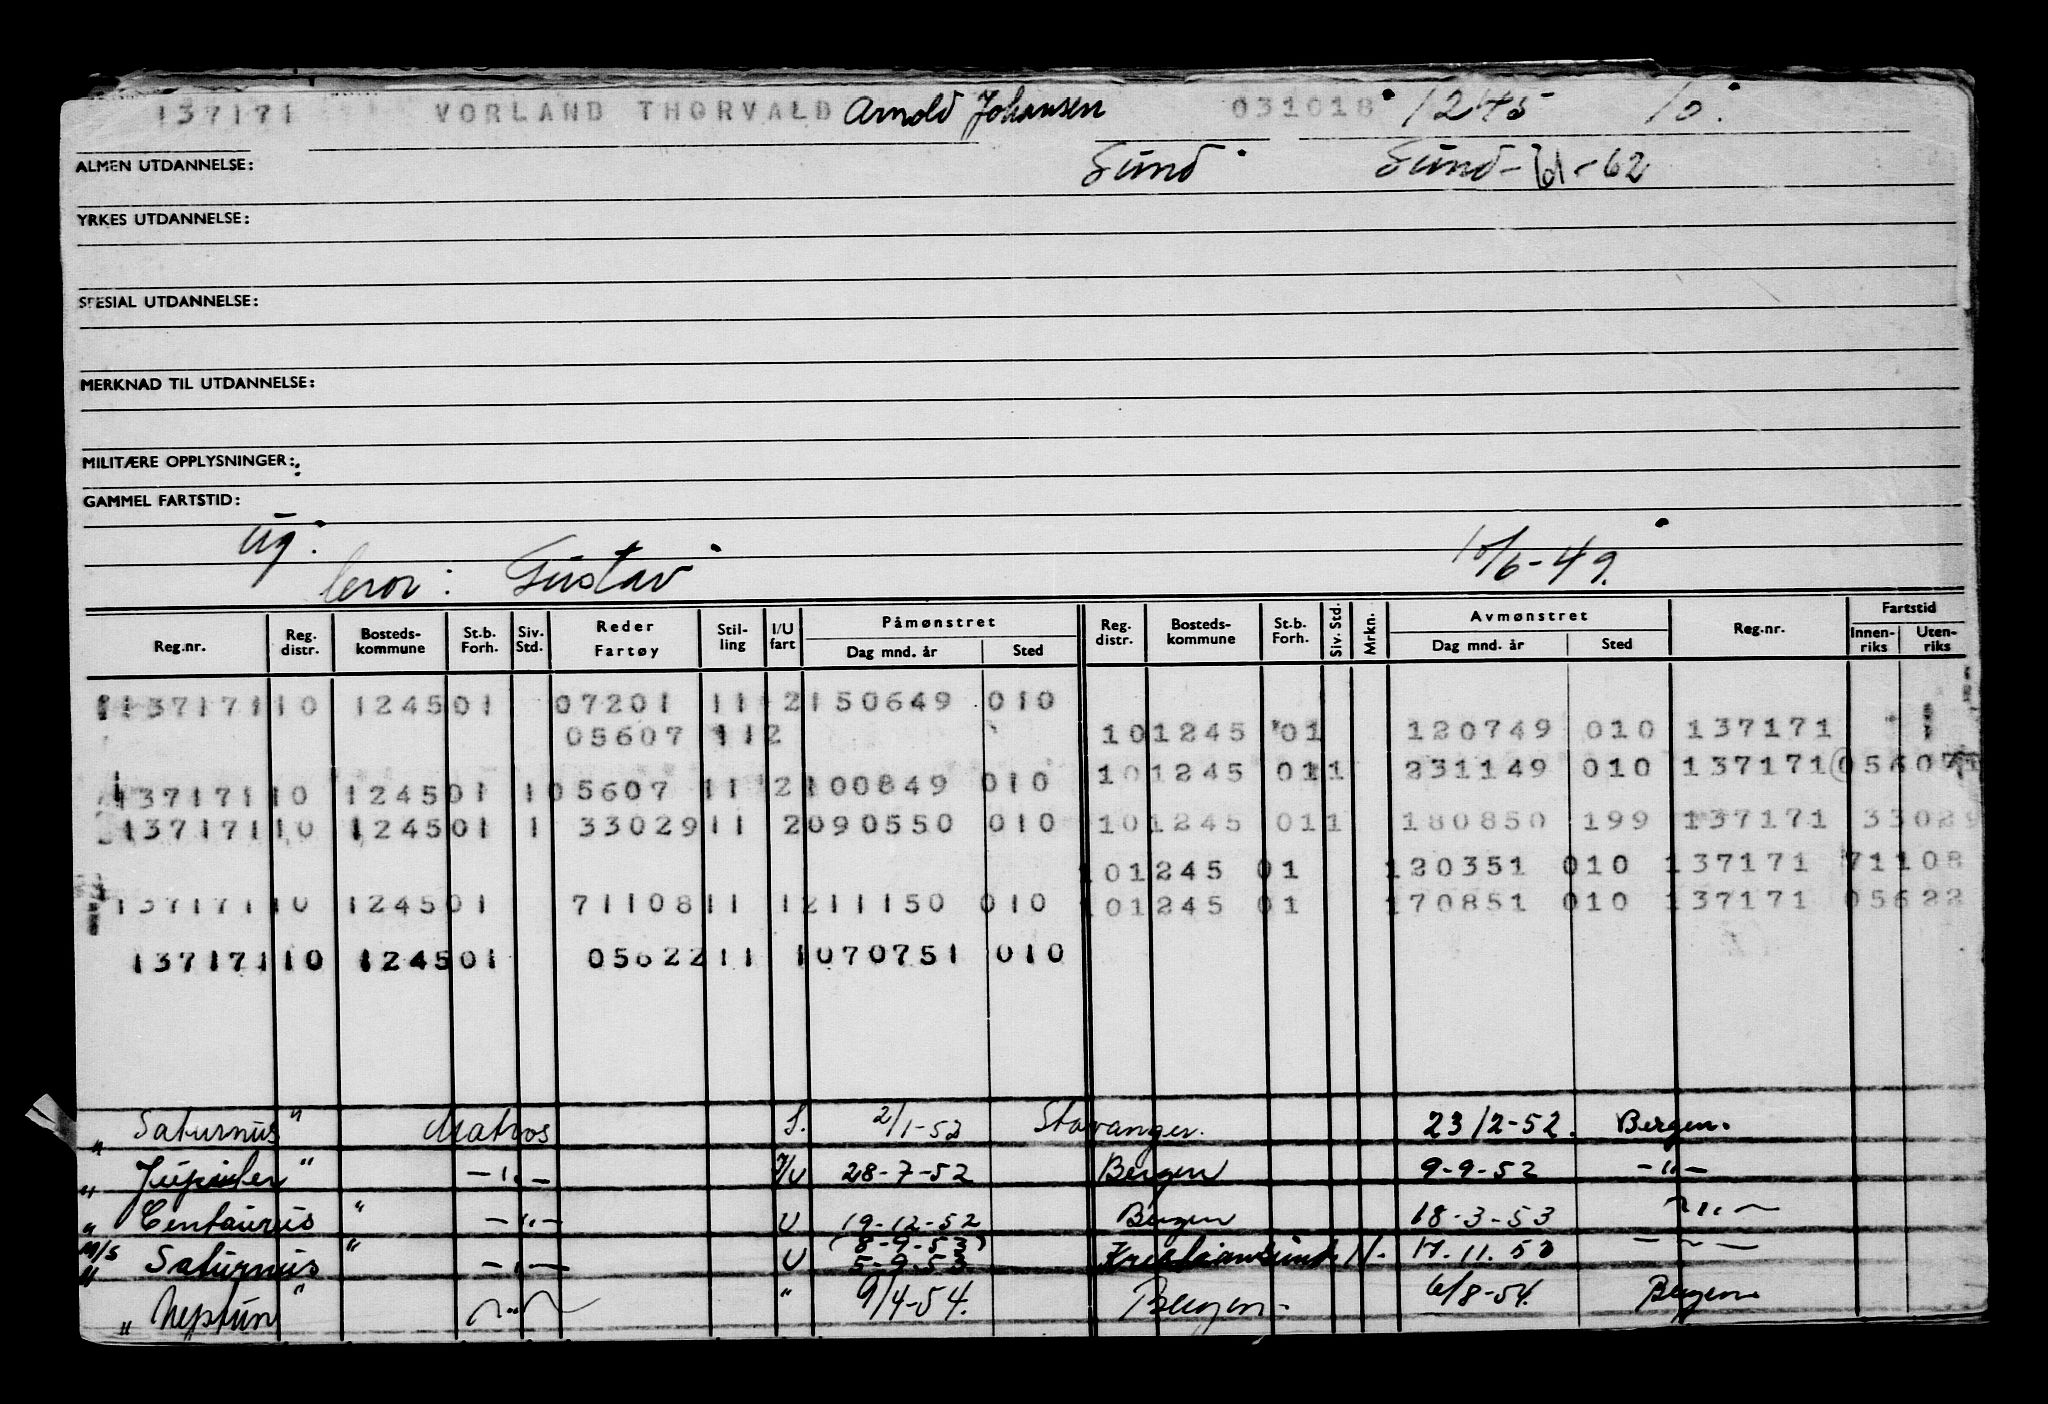 137171 VORLAND THORVALD Arnold Johansen 031018 1245 10.
ALMEN UTDANNELSE: Sund Sund - 61 - 62
YRKES UTDANNELSE:
SPESIAL UTDANNELSE:
MERKNAD TIL UTDANNELSE:
MILITÆRE OPPLYSNINGER:
GAMMEL FARTSTID:
ug.
bror: Gustav 10/6-49.
Reg.nr. Reg. distr. Bosteds-kommune St.b. Forh. Siv. Std. Reder Fartøy Stil-ling I/U fart Påmønstret Dag mnd. år Sted Reg. distr. Bosteds-kommune St.b. Forh. Siv. Std. Mrkn. Avmønstret Dag mnd. år Sted Reg.nr. Fartstid Innen-riks Uten-riks
137171 10 1245 01 07201 11 2 150649 010
05607 11 2 10 1245 01 120749 010 137171
10 1245 01 1 231149 010 137171 05607
137171 10 1245 01 1 05607 11 2 100849 010
137171 10 1245 01 1 33029 11 2 090550 010 10 1245 01 1 180850 199 137171 33029
10 1245 01 120351 010 137171 71108
137171 10 1245 01 71108 11 1 211150 010 10 1245 01 170851 010 137171 05622
137171 10 1245 01 05622 11 1 070751 010
" Saturnus " Matros S. 2/1-52 Stavanger. 23/2-52. Bergen.
" Jupiter " -"- I/U 28-7-52 Bergen 9-9-52 -"-
" Centaurus " -"- U 19-12-52 Bergen 18-3-53 -"-
M/S Saturnus " -"- U (8-9-53) 5-9-53 Kristiansund N. 17.11.53 -"-
" Neptun " -"- " 9/4-54. Bergen - 6/8-54. Bergen